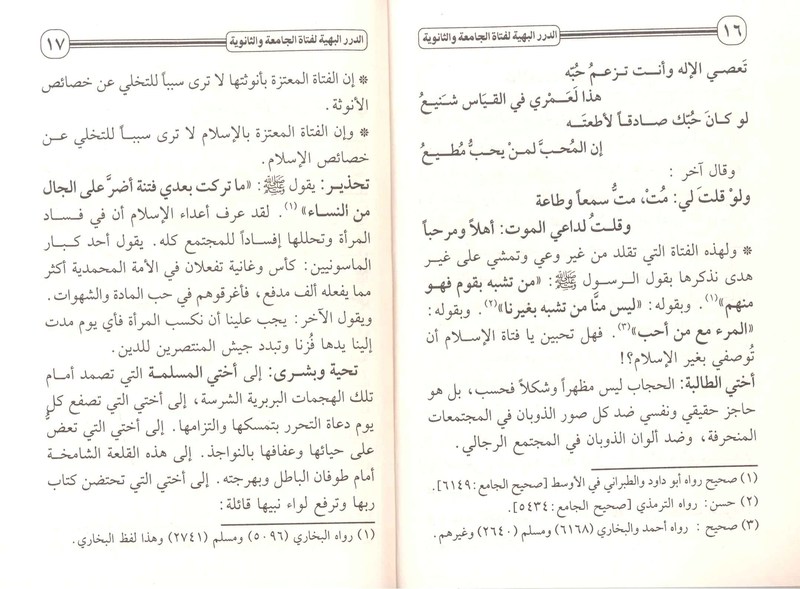 ١٦
الدرر البهية لفتاة الجامعة والثانوية
تَعصي الإله وأنت تزعمُ حُبّه
هذا لَعَمْري في القيَاس شنَيعُ
لو كانَ حُبّك صادقاً لأطعتَه
إن المُحبَّ لمنْ يحبُّ مُطيعُ
وقال آخر :
ولوْ قلتَ لي: مُتْ، متُّ سمعاً وطاعة
وقلتُ لداعي الموت: أهلاً ومرحباً
* ولهذه الفتاة التي تقلد من غير وعي وتمشي على غير
هدى نذكرها بقول الرسول ﷺ: «من تشبه بقوم فهو
منهم»(١). وبقوله: «ليس منَّا من تشبه بغيرنا»(٢). وبقوله:
«المرء مع من أحب»(٣). فهل تحبين يا فتاة الإسلام أن
تُوصفي بغير الإسلام؟!
أختي الطالبة: الحجاب ليس مظهراً وشكلاً فحسب، بل هو
حاجز حقيقي ونفسي ضد كل صور الذوبان في المجتمعات
المنحرفة، وضد ألوان الذوبان في المجتمع الرجالي.
(١) صحيح رواه أبو داود والطبراني في الأوسط [صحيح الجامع: ٦١٤٩].
(٢) حسن: رواه الترمذي [صحيح الجامع: ٥٤٣٤].
(٣) صحيح : رواه أحمد والبخاري (٦١٦٨) ومسلم (٢٦٤٠) وغيرهم.
الدرر البهية لفتاة الجامعة والثانوية
١٧
* إن الفتاة المعتزة بأنوثتها لا ترى سبباً للتخلي عن خصائص
الأنوثة.
* وإن الفتاة المعتزة بالإسلام لا ترى سبباً للتخلي عن
خصائص الإسلام.
تحذير: يقول ﷺ: «ما تركت بعدي فتنة أضرَّ على الجال
من النساء»(١). لقد عرف أعداء الإسلام أن في فساد
المرأة وتحللها إفساداً للمجتمع كله. يقول أحد كبار
الماسونيين: كأس وغانية تفعلان في الأمة المحمدية أكثر
مما يفعله ألف مدفع، فأغرقوهم في حب المادة والشهوات.
ويقول الآخر: يجب علينا أن نكسب المرأة فأي يوم مدت
إلينا يدها فُزنا وتبدد جيش المنتصرين للدين.
تحية وبشرى: إلى أختي المسلمة التي تصمد أمام
تلك الهجمات البربرية الشرسة، إلى أختي التي تصفع كل
يوم دعاة التحرر بتمسكها والتزامها. إلى أختي التي تعضُّ
على حيائها وعفافها بالنواجذ. إلى هذه القلعة الشامخة
أمام طوفان الباطل وبهرجته. إلى أختي التي تحتضن كتاب
ربها وترفع لواء نبيها قائلة:
(١) رواه البخاري (٥٠٩٦) ومسلم (٢٧٤١) وهذا لفظ البخاري.